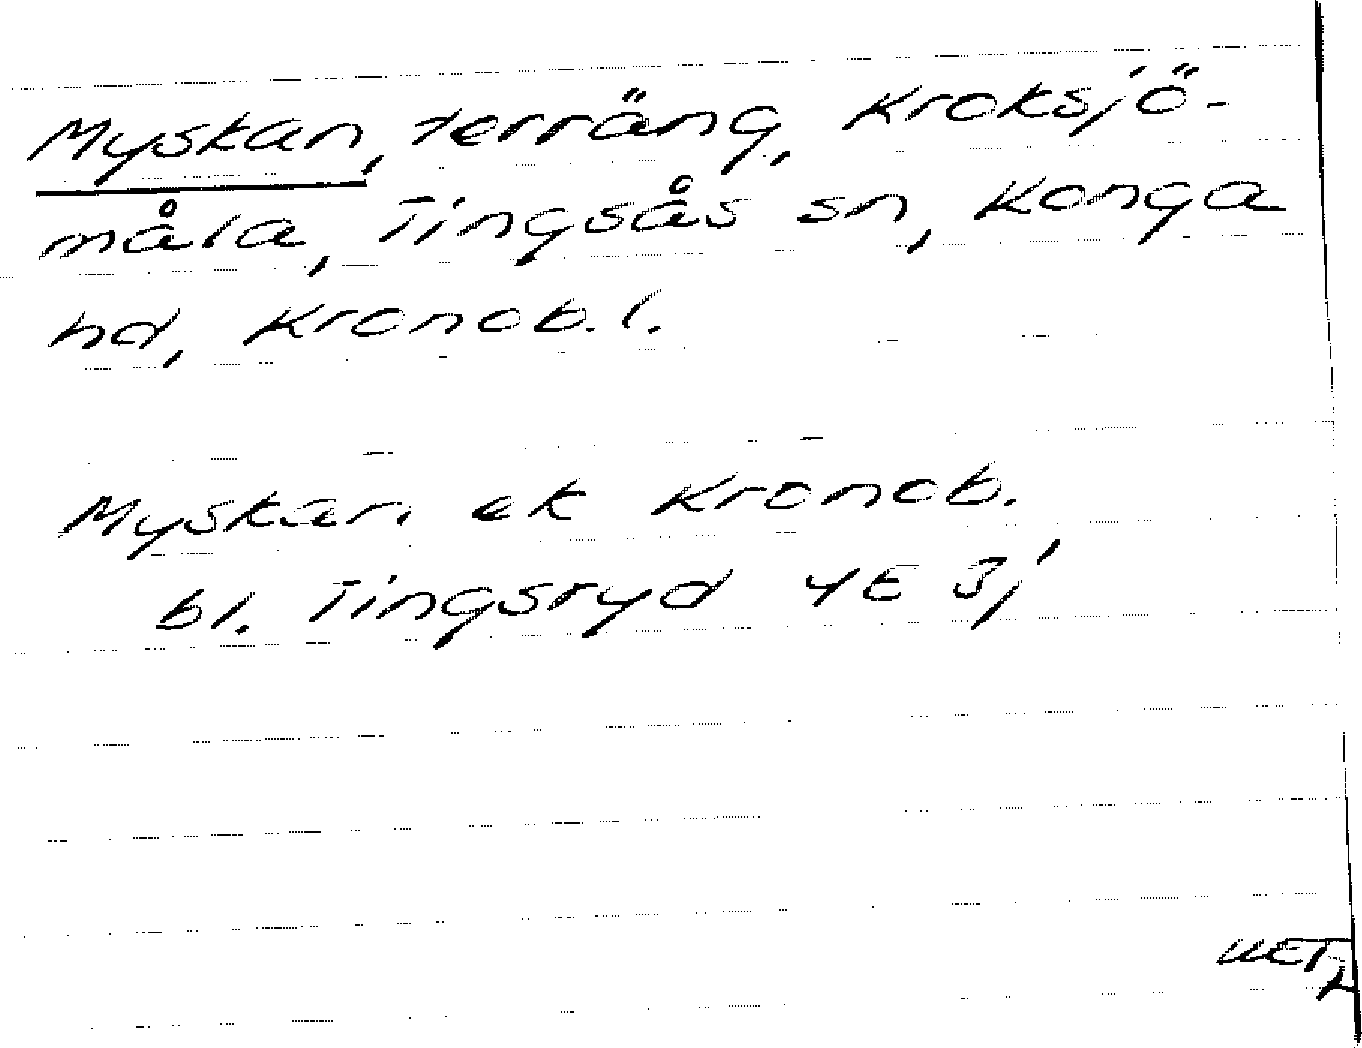 Myskan, terräng, Kroksjö-
måla, Tingsås sn, Konga
hd, Kronob. l.
Myskan ek Kronob.
bl. Tingsryd 4E 3j